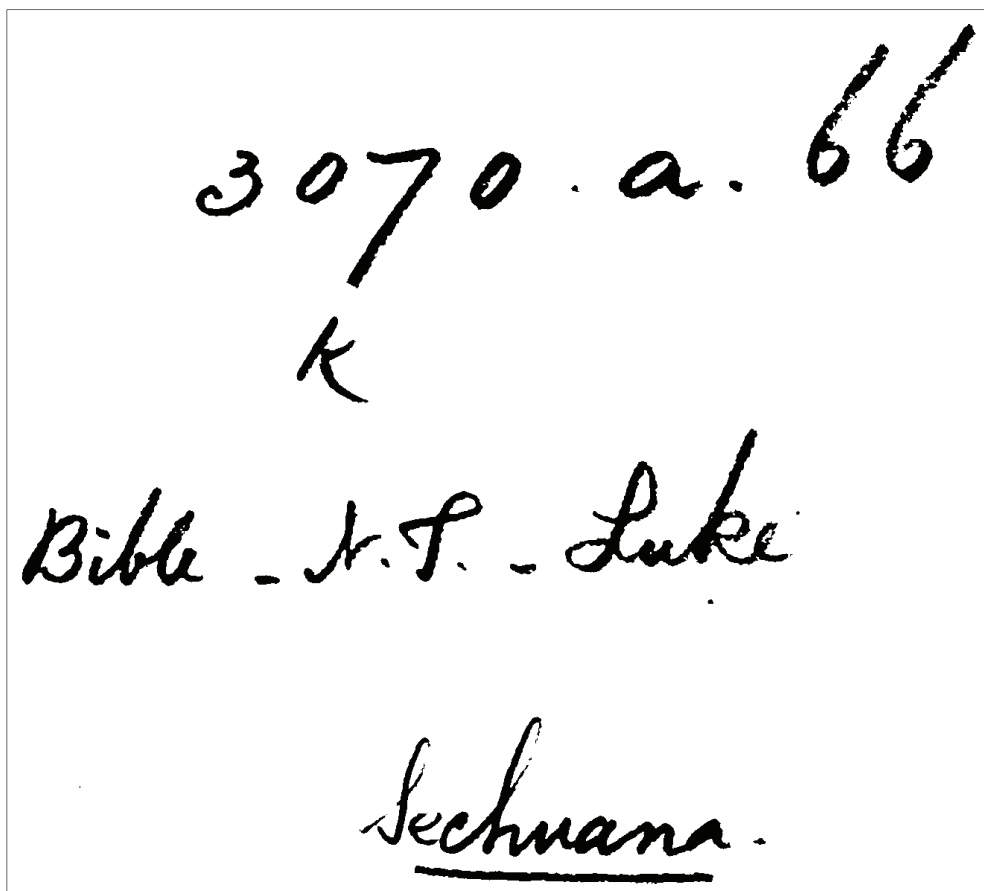 3070.a.66
K
Bible - N.T. - Luke
Sechuana.